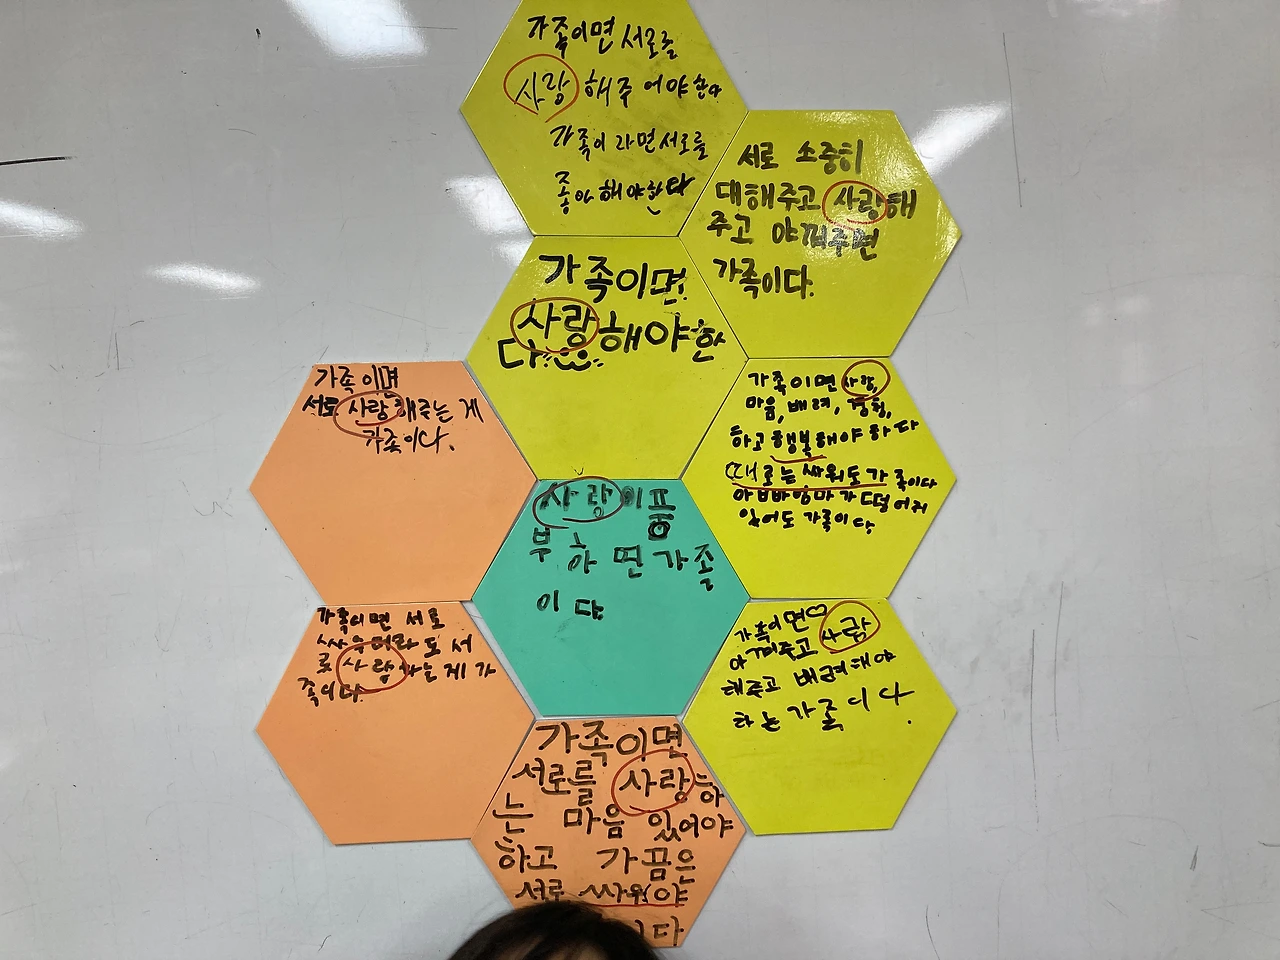 가족이면 서로를
사랑해주어야 한다
가족이라면 서로를
좋아해야한다
서로 소중히
대해주고 사랑해
주고 야껴주면
가족이다.
가족이면
사랑해야한
다
가족이면
서로 사랑해주는 게
가족이다.
가족이면 사랑,
마음, 배려,
하고 행복해야 하다
때로는 싸워도 가족이다
아빠와 엄마가 떨어져
있어도 가족이다
사랑이 풍
부하면 가졸
이다.
가족이면 서로
싸우더라도 서
롯 사랑하는게 가
족이다.
가족이면♡
아껴주고 사람
해주고 배려해야
하는 가족이다.
가족이면
서로를 사랑하
는 마음 있어야
하고 가끔은
서로 싸워야
이다